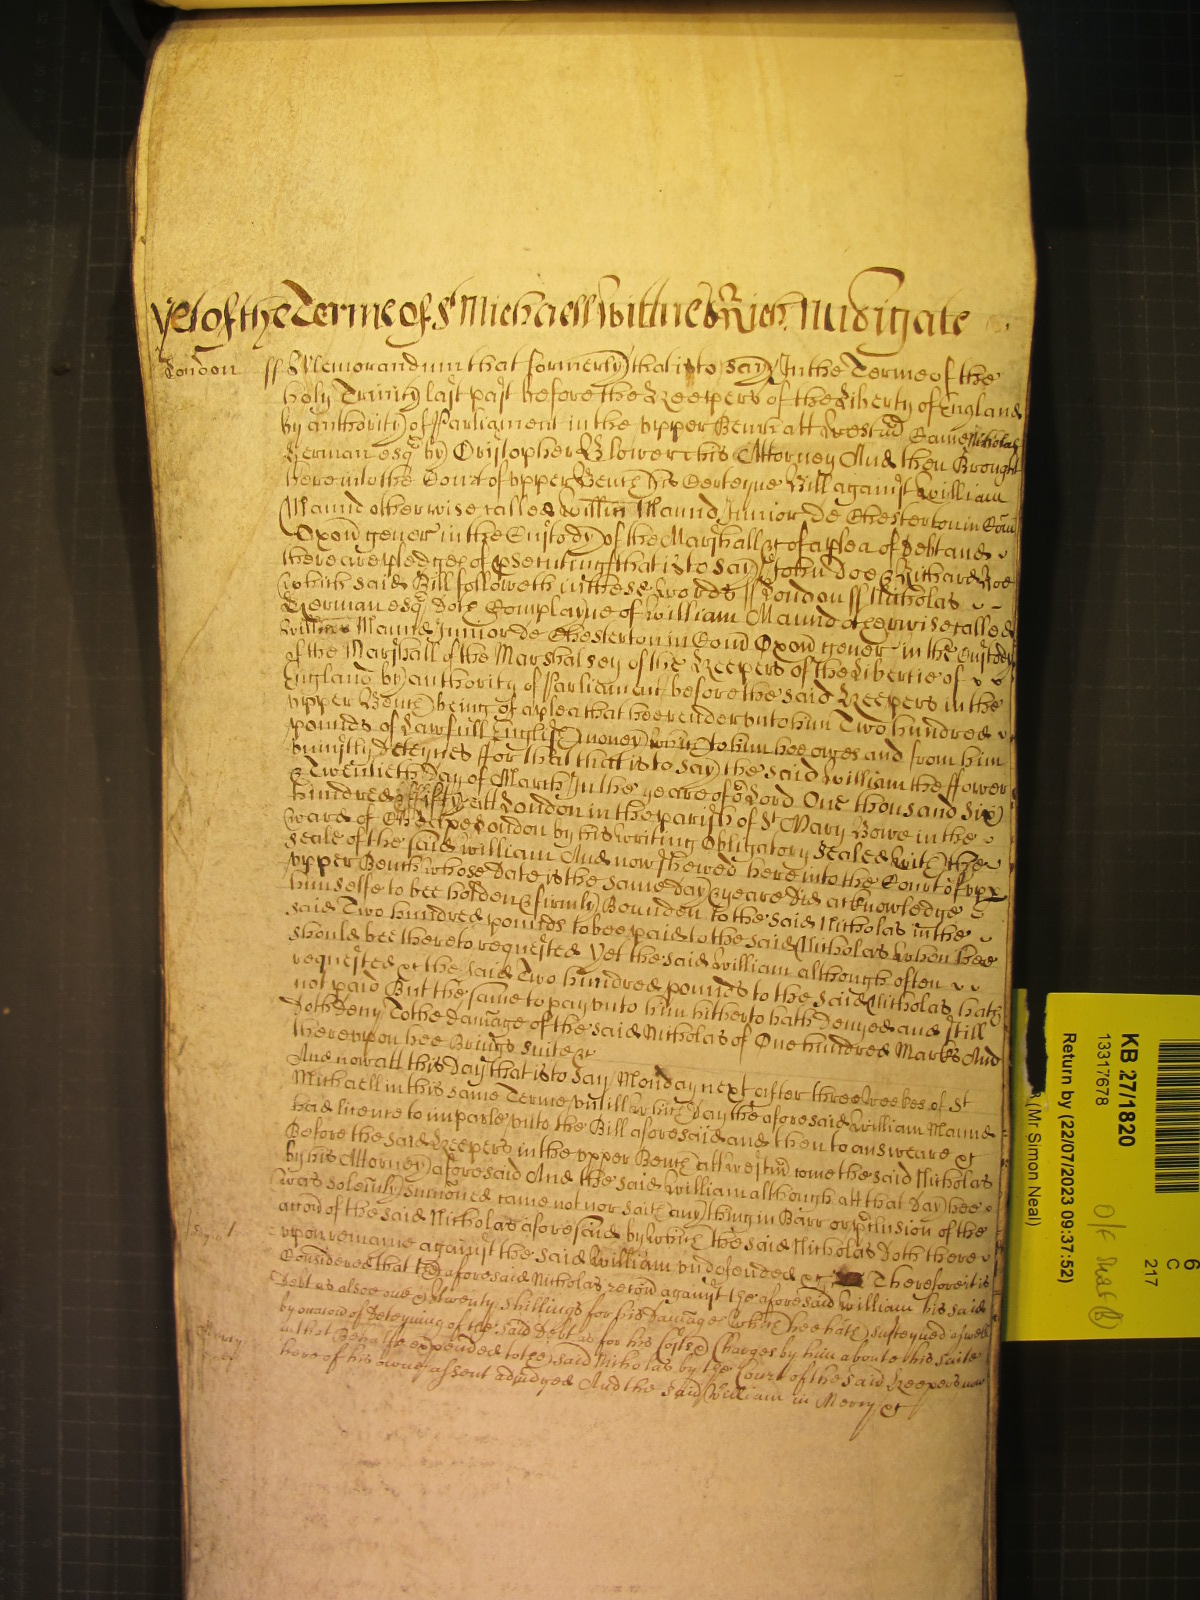 Yet of the Terme of St Michaell Wittnes Rich Mudigate
London ss Memorandum that formerly that is to say In the Terme of the
holy Trinity last past before the Keepers of the Liberty of England
by authority of Parliament in the upper Bench att Westm̃ Came Nicholas
German esq by Cristopher Blower his Attorney And then Brought
here into the Court of upper Bench his Certeyne Bill against William
Maund otherwise called Willm̃ Maund Junior de Chesterton in Com̃
Oxoñ gener in the Custody of the Marshall &c of a plea of Debt and
there are pledges of psecuting that is to say John Doe & Richard Roe
which said Bill followeth in these words ss London ss Nicholas
German esq doth Complayne of William Maund otherwise called
Willm̃ Maund Junior de Chesterton in Com̃ Oxoñ gener in the Custody
of the Marshall of the Marshalsey of the Keepers of the Libertie of
England by authority of Parliament before the said Keepers in the
upper Bench being of a plea that hee render unto him Two hundred
pounds of Lawfull English money which to him hee owes and from him
uniustly deteynes ffor that that is to say the said William the ffower
& Twentieth Day of March In the yeare of oʳ Lord One thousand six
hundred & fifty att London in the parish of St Mary Bowe in the
Ward of Cheape London by his writing Obligatory Sealed with the
Seale of the said William And now shewed here into the Court of upp
upper Bench whose Date is the same day & yeare did acknowledge
himselfe to bee holden & firmly Bounden to the said Nicholas in the
said Two hundred pounds to bee paid to the said Nicholas when hee
should bee thereto requested Yet the said William although often
requested &c the said Two hundred pounds to the said Nicholas hath
not paid But the same to pay unto him hitherto hath Denyed and still
doth deny To the damage of the said Nicholas of One hundred Marks And
thereupon hee Brings suite &c
And now att this Day that is to say Monday next after three weekes of St
Michaell in this same Terme untill which day the aforesaid William Maund
had licence to imparle unto the Bill aforesaid and then to answeare &c
Before the said Keepers in the upper Bench att Westm̃ come the said Nicholas
by his Attorney aforesaid And the said William although att that day hee
was solemnly sum̃oned came not nor saith any thing in Barr or p̃clusion of the
accõn of the said Nicholas aforesaid by which the said Nicholas doth there
upon remaine against the said William undefended &c Therefore it is
Considered that the aforesaid Nicholas recov̄ against the aforesaid William his said
Debt as alsoe one & twenty shillings for his damages which hee hath susteyned aswell
by occac̃on of deteyning of the said Debt as for his Costs & Charges by him aboute his suite
in that Behalfe expended to the said Nicholas by the Court of the said Keepers now
here of his owne assent adiudged And the said William in Mercy &c
Mercy
KB 27/1820
13317678
Return by (22/07/2023 09:37:52)
(Mr Simon Neal)
6
C
217